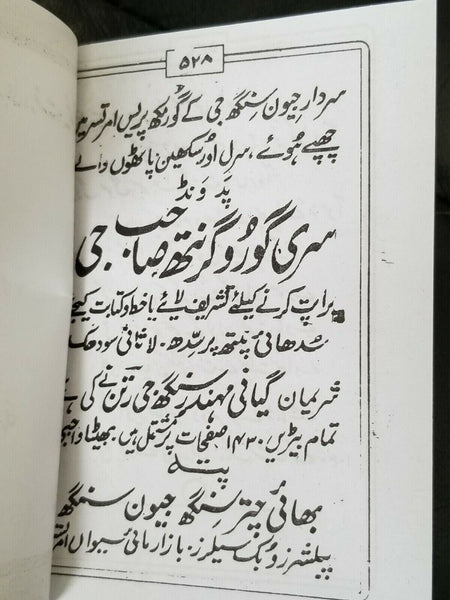 ۵۲۸
سردار جیون سنگھ جی کے گورمکھ پریس امرتسر میں
چھپے ہوئے، سرل اور سُکھین پاٹھوں والے
پد ونڈ
سری گورو گرنتھ صاحب جی
پراپت کرنے کیلئے تشریف لائے یا خط و کتابت کیجئے
سُدھائی پنتھ پرسدھ۔ لاثانی سودھک
شریمان گیانی مہندر سنگھ جی رتن نے کی ہے
تمام بیڑیں ۱۴۳۰ صفحات پر مشتمل ہیں۔ بھیٹا واجبی
پتہ
بھائی چتر سنگھ جیون سنگھ
پبلشرز و بک سیلرز۔ بازار مائی سیواں امرتسر